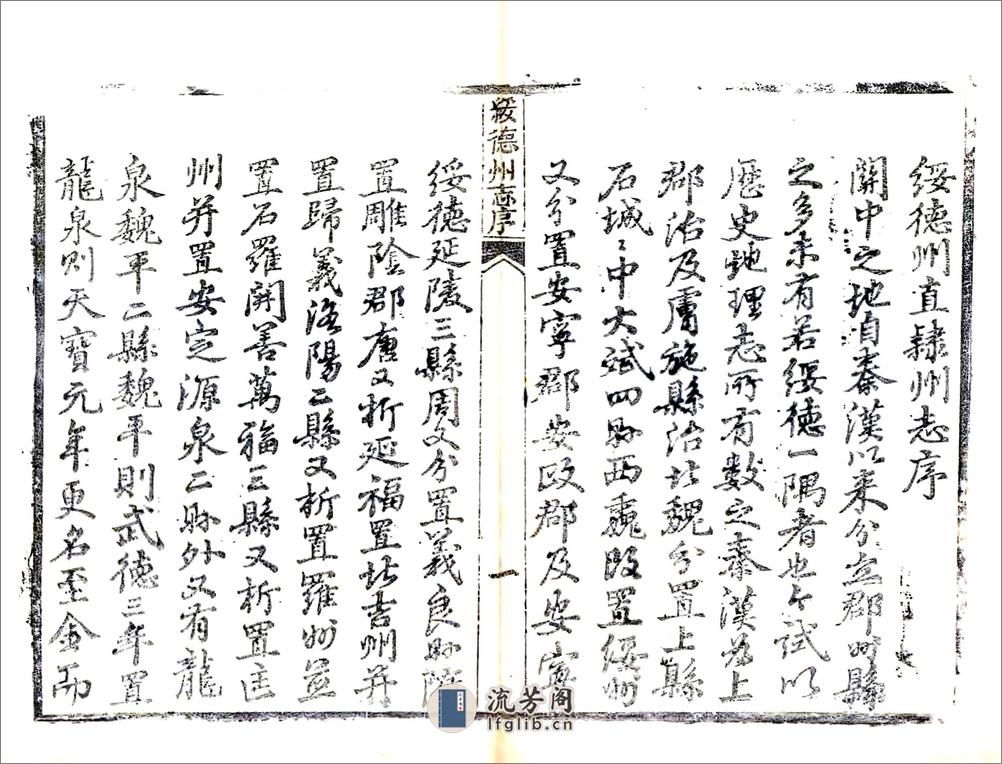 綏德州直隸州志序
關中之地自秦漢以来分立郡州縣
之多未有若綏德一隅者也今試以
歷史地理志所有數之秦漢為上
郡治及膚施縣治北魏分置上縣
石城〻中大斌四縣西魏改置綏州
又分置安寧郡安政郡及安寧
綏德州志序
一
綏德延陵三縣周又分置義良縣隋
置雕陰郡唐又析延福置北吉州并
置歸義洛陽二縣又析置羅州並
置石羅開善萬福三縣又析置匡
州并置安定源泉二縣外又有龍
泉魏平二縣魏平則武德三年置
龍泉則天寶元年更名至金而
流芳阁
lfglib.cn